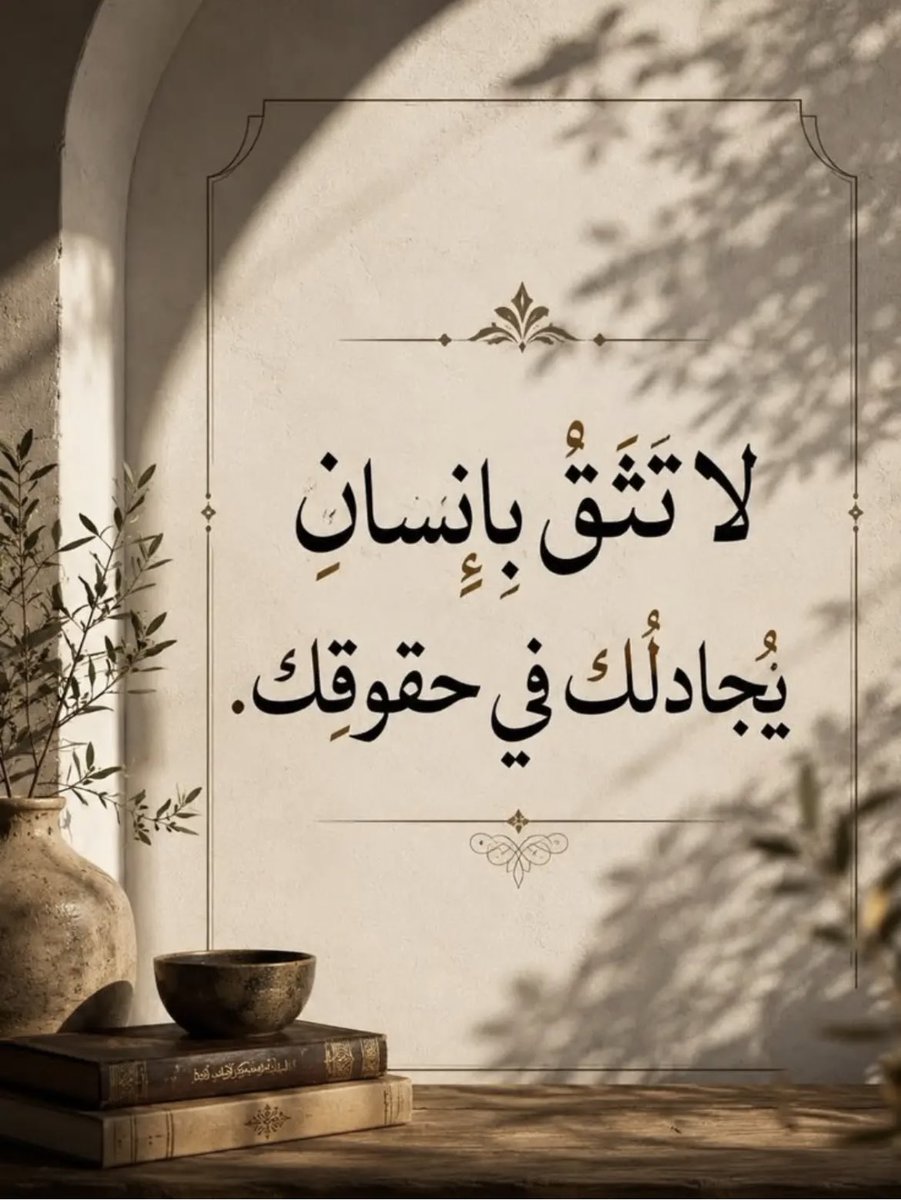 لا تَثَقُ بِإِنسانِ
يُجادلُك في حقوقِك.